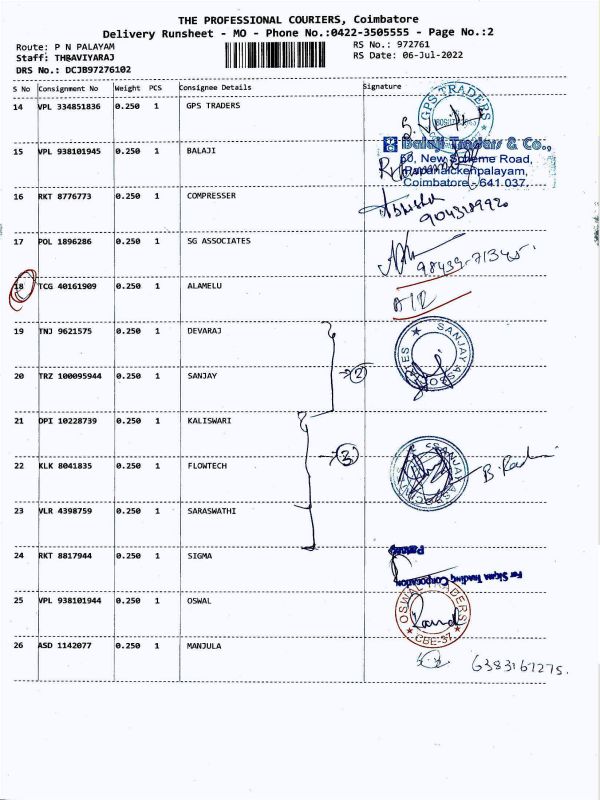 THE PROFESSIONAL COURIERS, Coimbatore
Delivery Runsheet - MO - Phone No.:0422-3505555 - Page No.:2
Route: P N PALAYAM RS No.: 972761
Staff: THBAVIYARAJ RS Date: 06-Jul-2022
DRS No.: DCJB97276102
S No Consignment No Weight PCS Consignee Details Signature
14 VPL 334851836 0.250 1 GPS TRADERS
GPS TRADERS
15 VPL 938101945 0.250 1 BALAJI
Balaji Traders & Co.,
60, New Scheme Road,
Papanaickenpalayam,
Coimbatore - 641 037.
16 RKT 8776773 0.250 1 COMPRESSER
17 POL 1896286 0.250 1 SG ASSOCIATES
18 TCG 40161909 0.250 1 ALAMELU
19 TNJ 9621575 0.250 1 DEVARAJ
20 TRZ 100095944 0.250 1 SANJAY
2
SANJAY ASSOCIATES
21 DPI 10228739 0.250 1 KALISWARI
3
22 KLK 8041835 0.250 1 FLOWTECH
SANJAY ASSOCIATES
23 VLR 4398759 0.250 1 SARASWATHI
24 RKT 8817944 0.250 1 SIGMA
Partner
For Sigma Trading Corporation
25 VPL 938101944 0.250 1 OSWAL
OSWAL TRADERS
CBE-37
26 ASD 1142077 0.250 1 MANJULA
6383167275.